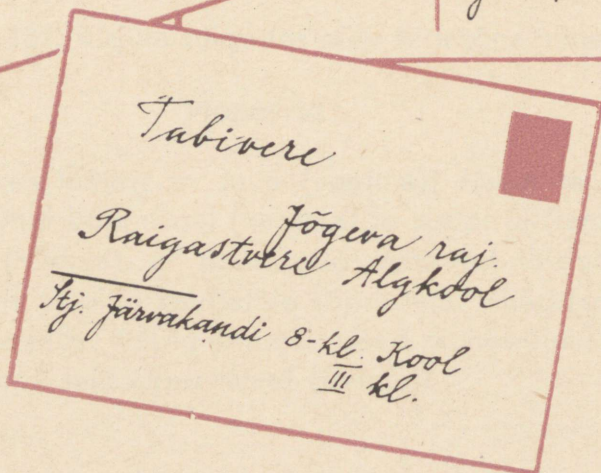 Tabivere
Jõgeva raj.
Raigastvere Algkool
Stj. Järvakandi 8-kl. Kool
III kl.